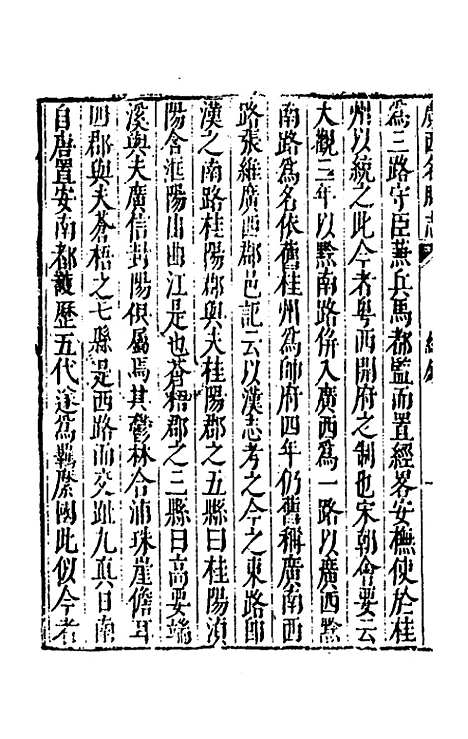 廣西名勝志
爲三路守臣兼兵馬都監而置經畧安撫使於桂
州以統之此今者粵西開府之制也宋朝會要云
大觀二年以黔南路併入廣西爲一路以廣西黔
南路爲名依舊桂州爲帥府四年仍舊稱廣南西
路張維廣西郡邑記云以漢志考之今之東路卽
漢之南路桂陽郡與夫桂陽郡之五縣曰桂陽湞
陽含洭陽山曲江是也蒼梧郡之三縣曰高要端
溪與夫廣信封陽俱屬焉其鬱林合浦珠崖儋耳
四郡與夫蒼梧之七縣是西路而交趾九真日南
自唐置安南都護歷五代遂爲羈縻國此似今者